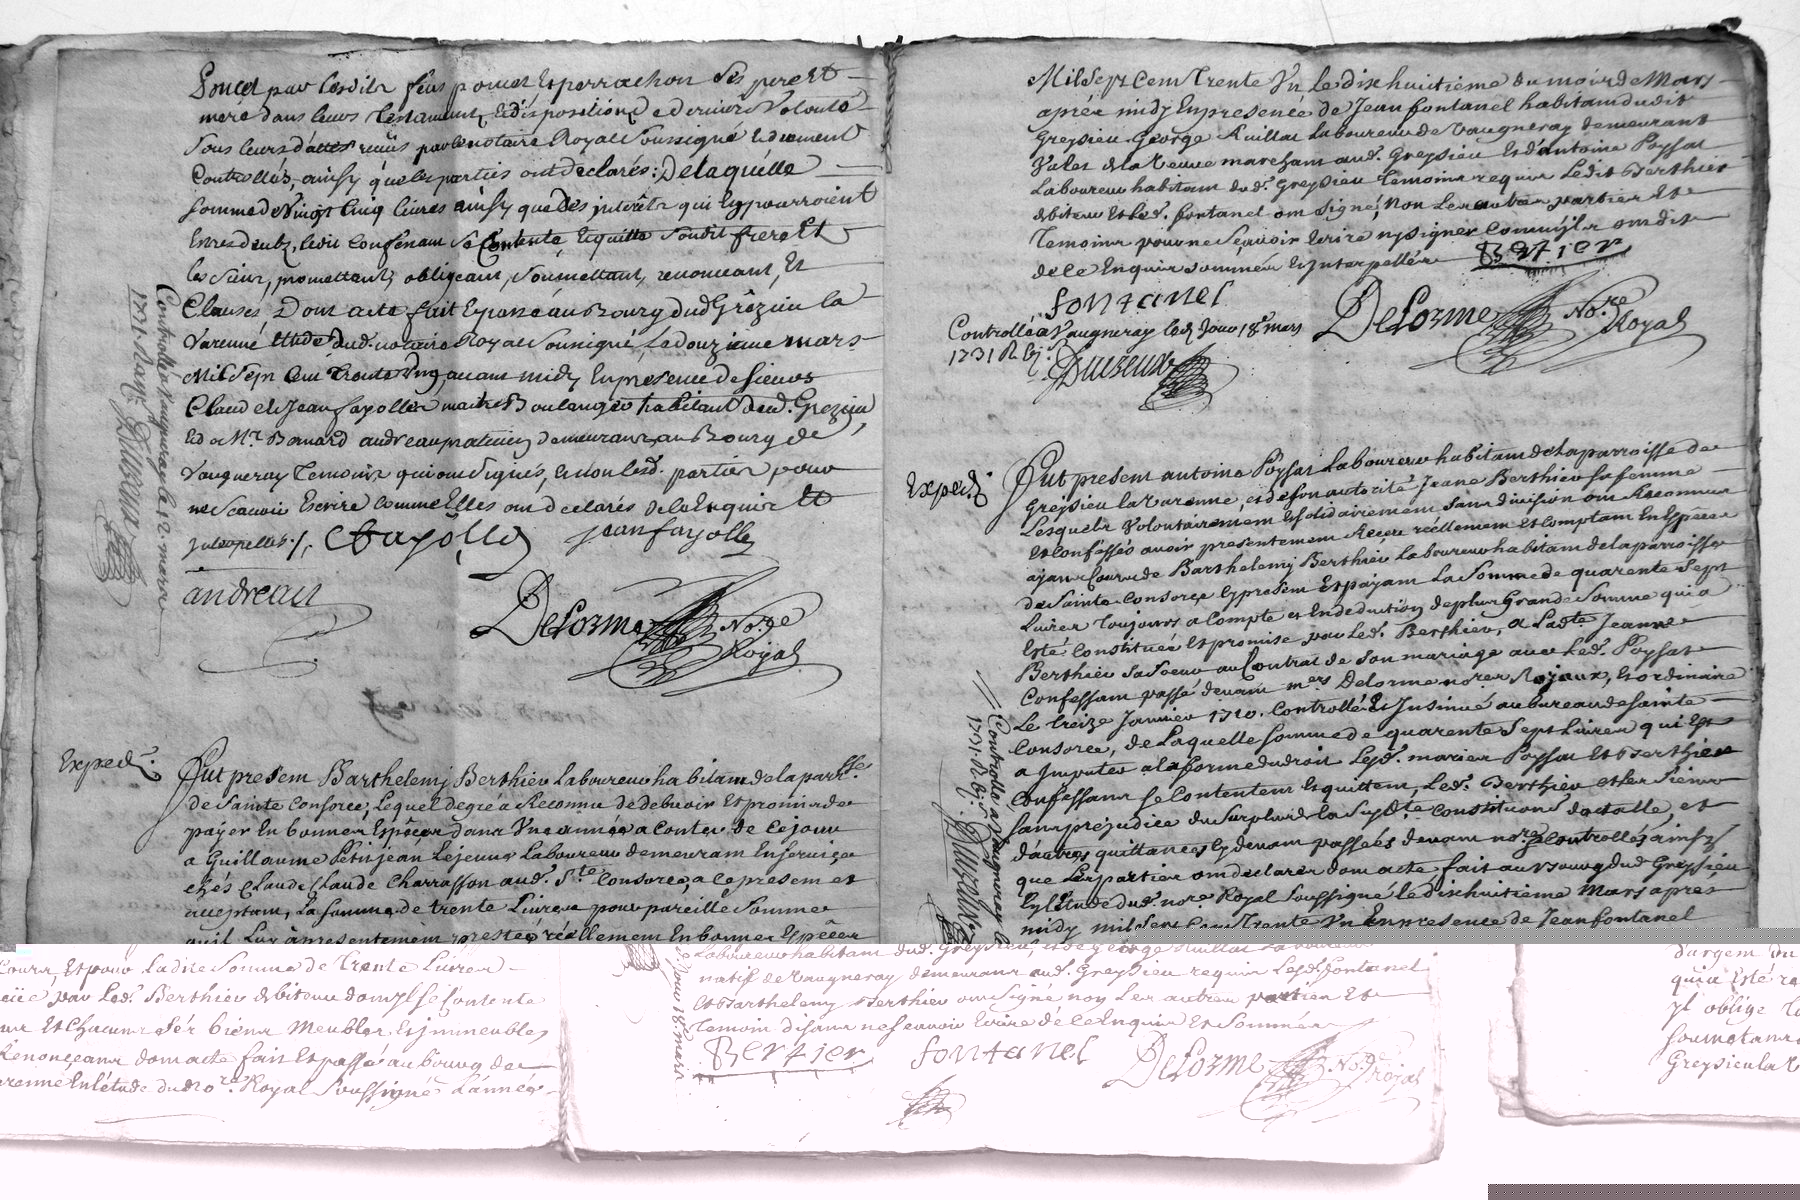 Poncet par lesdits feus poncet Et perrachon Ses pere Et
mere dans leurs Testaments, Et dispositions de derniere Volonté
Sous leurs dattes reçüs par le notaire Royal Soussigné Et duement
Controllés, ainsy que les parties ont declarés; De laquelle
somme de Vingt Cinq livres ainsy que des interets qui En pourroient
Le dit Confenant Se Contente, Et quitte Soudit frere Et
les Siens, promettants, obligeant, Soumettant, renonceant, Et
Clauses Dont acte fait Et passé au Bourg dud Grézieu la
Varenne Etude dud. notaire Royal Soussigné, Le douzieme mars
Mil Sept Cent Trente Un, avant midy En presence de Sieurs
Claud et Jean fayolle maitres Boulanger habitants dud. Grezieu,
Et de Mr Benard andreau praticien demeurant au Bourg de
Vaugneray Temoins qui ont Signés, Et non lesd. parties pour
ne Scavoir Escrire Comme Elles ont declarés de le Enquis Et
Interpellés ./.
C fayolle
jean fayolle
andreau
Delorme No.re
Royal
Controllé a Vaugneray le 12. mars
1731. Reçu
Exped.
Fut present Barthelemy Berthier Laboureur habitant de la parsse
de Sainte Consorce, Lequel de gré a Reconnu de debvoir Et promis de
payer En bonnes Espèces dans Une année a Conter de Ce jour
a Guillaume Petitjean Lejeune Laboureur demeurant En Service
chés Claude Claude Charrasson aud. Ste Consorce, a ce present et
acceptant, La Somme de trente Livres pour pareille Somme
quil Luy a presentement prestée réellement En bonnes Espèces
Cours, Et pour La dite Somme de Trente Livres
par Led. Berthier debiteur dont yl Se Contente
Et Chacuns Sés biens Meubles, Et immeubles
Renonceant dont acte fait Et passé au bourg de
En létude dud no.re Royal Soussigné Lannée
Mil Sept Cent Trente Un le dix huitième du mois de Mars
après midy En presence de Jean fontanel habitant dudit
Greysieu George Ruillat Laboureur de Vaugneray demeurant
Valet de la Veuve marchant aud. Greysieu Et d'antoine Poyssat
Laboureur habitant dud. Greysieu Temoins requis Ledit Berthier
debiteur Et Led. fontanel ont Signé, Non Les autres parties Et
Temoins pour ne Sçavoir Ecrire ny Signer Comme yls ont dit
de le Enquis Sommés Et Interpellés
Bertier
fontanel
Delorme No.re
Royal
Controllé a Vaugneray led Jour 18e mars
1731 R
Exped.
Fut present antoine Poyssat Laboureur habitant de la parroisse de
Greysieu la Varenne, et de son autorité Jeane Berthier sa femme
Lesquels Volontairement Et Solidairement Sans division ont Reconnus
Et Confessés avoir presentement Receu réellement Et Comptant En Espèces
ayant Cours de Barthelemy Berthier Laboureur habitant de la parroisse
de Sainte Consorce Cy present Et payant La Somme de quarente Sept
Livres Toujours a Compte et En deduction de plus Grande Somme qui a
Esté Constituée Et promise par Led. Berthier, a Ladte Jeanne
Berthier Sa Soeur au Contrat de Son mariage avec Led. Poyssat
Confessant passé devant mers Delorme no.res Royaux, Et ordinaire
Le Treize Janvier 1720. Controllé Et Insinué au bureau de Sainte
Consorce, de Laquelle Somme de quarente Sept Livres qui Est
a Imputer a la forme du droit Lesd. mariés Poyssat Et Berthier
Confessants Se Contentent Et quittent, Led. Berthier et les Siens
Sans préjudice du Surplus de La Susdte Constitution dotalle, et
d'autres quittances Cy devant passées devant no.res Controllés ainsy
que Les parties ont declarer dont acte fait au Bourg dud Greysieu
Et Etude dud. no.re Royal Soussigné le dix huitième Mars après
midy mil Sept Cent Trente Un En presence de Jean fontanel
Laboureur habitant dud. Greysieu, et de George Ruillat Laboureur
natif de Vaugneray demeurant aud. Greysieu requis Lesd. fontanel
Et Barthelemy Berthier ont Signé non Les autres parties Et
Temoin disant ne Sçavoir Ecrire de Le Enquis Et Sommés
Bertier
fontanel
Delorme No.re
Royal
Controllé a Vaugneray le
1731. R
Jour 18. mars
d'argent du
qui a Esté re
yl oblige To
Soumettant
Greysieu la V